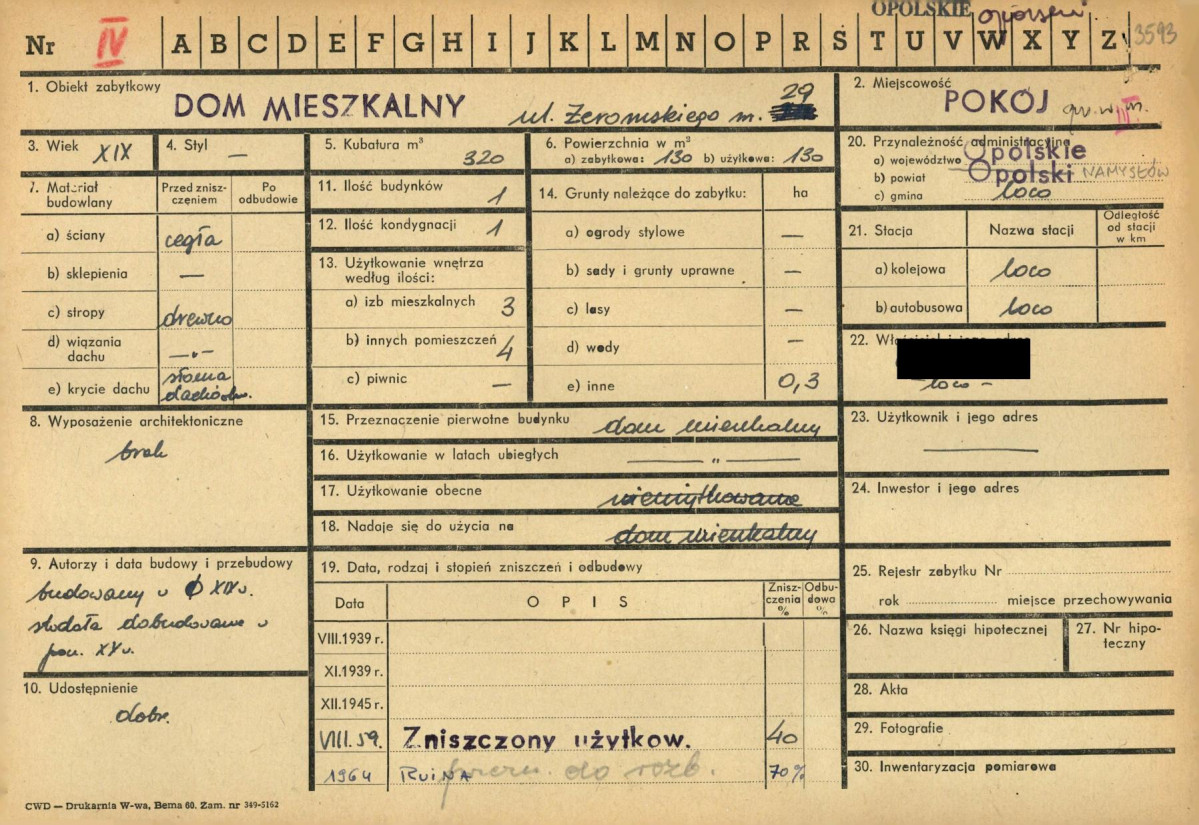 OPOLSKIE opolski
Nr IV A B C D E F G H I J K L M N O P R S T U V W X Y Z 3593
1. Obiekt zabytkowy
DOM MIESZKALNY ul. Żeromskiego nr. 29
2. Miejscowość
POKÓJ
III
3. Wiek XIX
4. Styl —
5. Kubatura m³ 320
6. Powierzchnia w m³
a) zabytkowa: 130 b) użytkowa: 130
7. Materiał budowlany
Przed zniszczeniem
Po odbudowie
a) ściany cegła
b) sklepienia —
c) stropy drewno
d) wiązania dachu —„—
e) krycie dachu słoma dachówk.
8. Wyposażenie architektoniczne
brak
9. Autorzy i data budowy i przebudowy
budowany w XIX w.
stodoła dobudowana w
pocz. XX w.
10. Udostępnienie
dobr.
11. Ilość budynków 1
12. Ilość kondygnacji 1
13. Użytkowanie wnętrza
według ilości:
a) izb mieszkalnych 3
b) innych pomieszczeń 4
c) piwnic —
14. Grunty należące do zabytku: ha
a) ogrody stylowe —
b) sady i grunty uprawne —
c) lasy —
d) wody —
e) inne 0,3
15. Przeznaczenie pierwotne budynku dom mieszkalny
16. Użytkowanie w latach ubiegłych —„—
17. Użytkowanie obecne nieużytkowane
18. Nadaje się do użycia na dom mieszkalny
19. Data, rodzaj i stopień zniszczeń i odbudowy
Data OPIS Zniszczenia % Odbudowa %
VIII.1939 r.
XI.1939 r.
XII.1945 r.
VIII.59. Zniszczony użytkow. 40
1964 RUINA do rozb. 70%
20. Przynależność administracyjna
a) województwo Opolskie
b) powiat Opolski NAMYSŁÓW
c) gmina loco
21. Stacja Nazwa stacji Odległość od stacji w km
a) kolejowa loco
b) autobusowa loco
22.
loco –
23. Użytkownik i jego adres
—
24. Inwestor i jego adres
25. Rejestr zabytku Nr
rok miejsce przechowywania
26. Nazwa księgi hipotecznej
27. Nr hipoteczny
28. Akta
29. Fotografie
30. Inwentaryzacja pomiarowa
CWD — Drukarnia W-wa, Bema 60. Zam. nr 349-5162